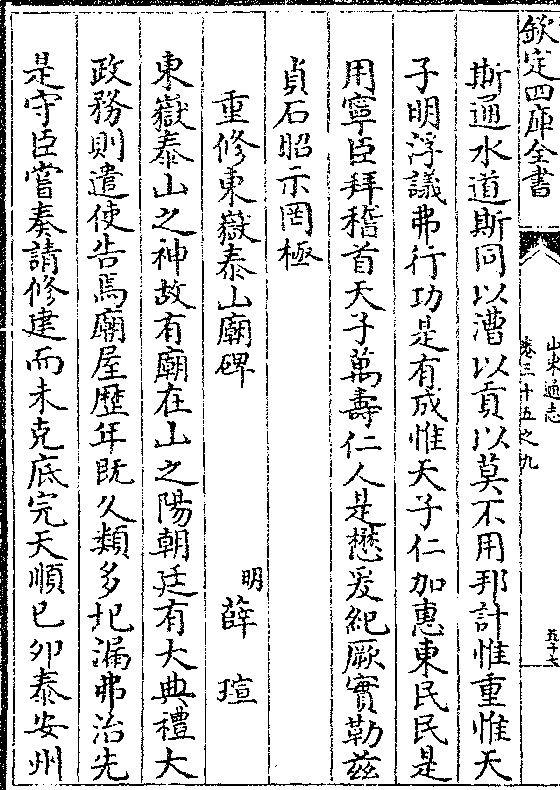 欽定四庫全書
山東通志
卷三十五之九
五十七
斯通水道斯同以漕以貢以莫不用邦計惟重惟天
子明浮議弗行功是有成惟天子仁加惠東民民是
用寧臣拜稽首天子萬壽仁人是懋爰紀厥實勒兹
貞石昭示罔極
重修東嶽泰山廟碑
明薛瑄
東嶽泰山之神故有廟在山之陽朝廷有大典禮大
政務則遣使告焉廟屋歴年既久類多圮漏弗治先
是守臣嘗奏請修建而未克底完天順已卯泰安州